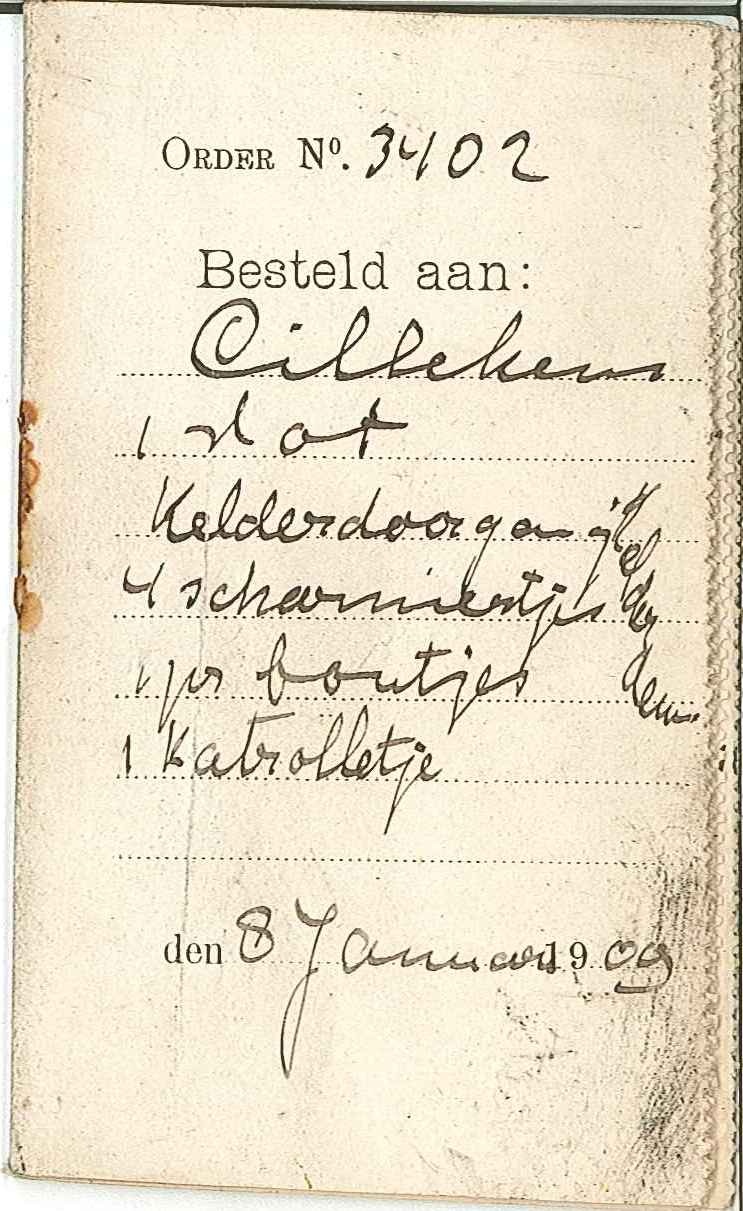 ORDER Nº. 3402
Besteld aan:
Cillekens
1 slot
Kelderdoorgang
4 scharniertjes
1 pr boutjes
1 Katrolletje
den 8 Januari 1909